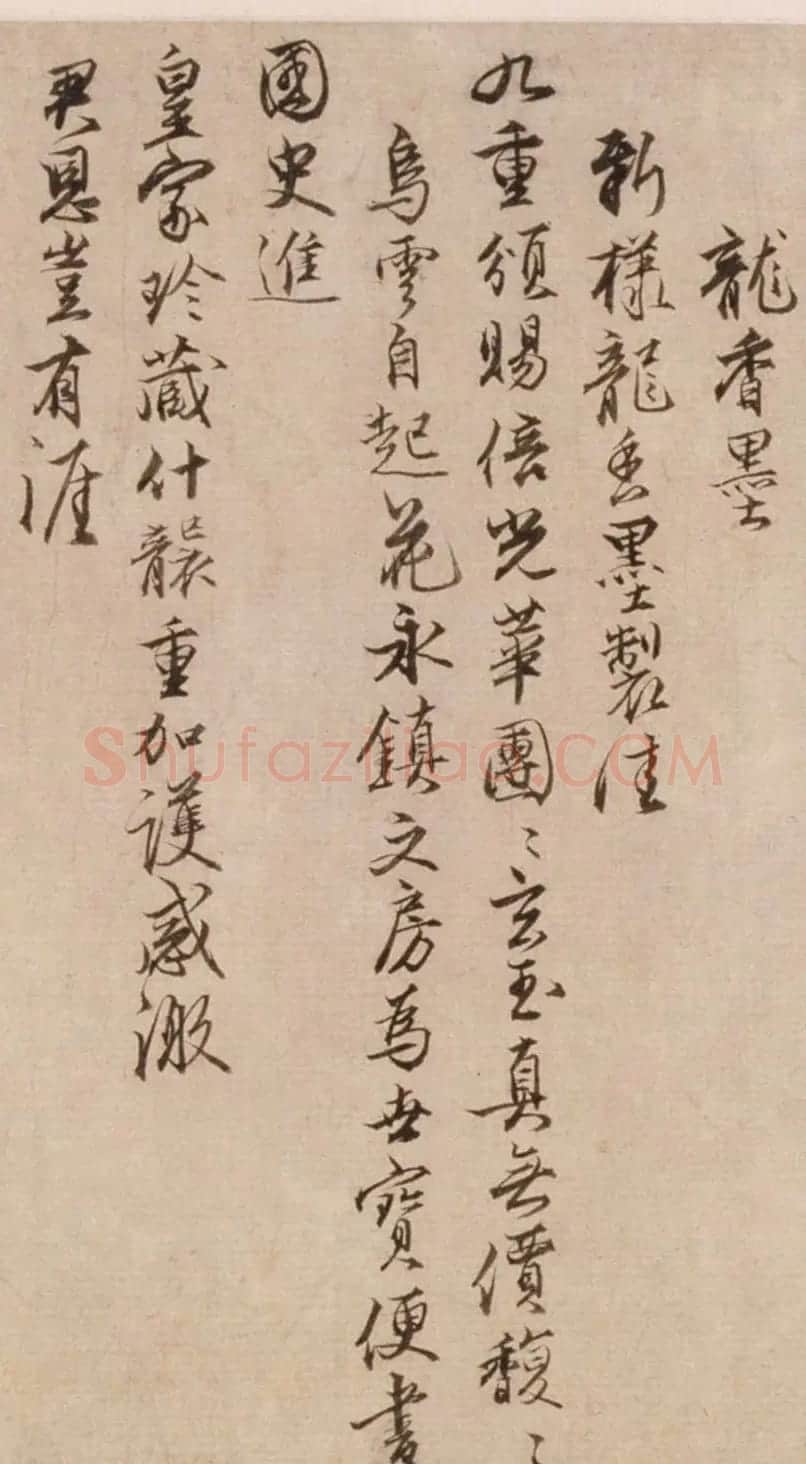 龍香墨
新樣龍香墨製佳
九重頒賜倍光華團〻玄玉真無價馥〻
烏雲自起花永鎮文房為世寶便書
國史進
皇家珍藏什襲重加護感激
天恩豈有涯
shufaziliao.COM